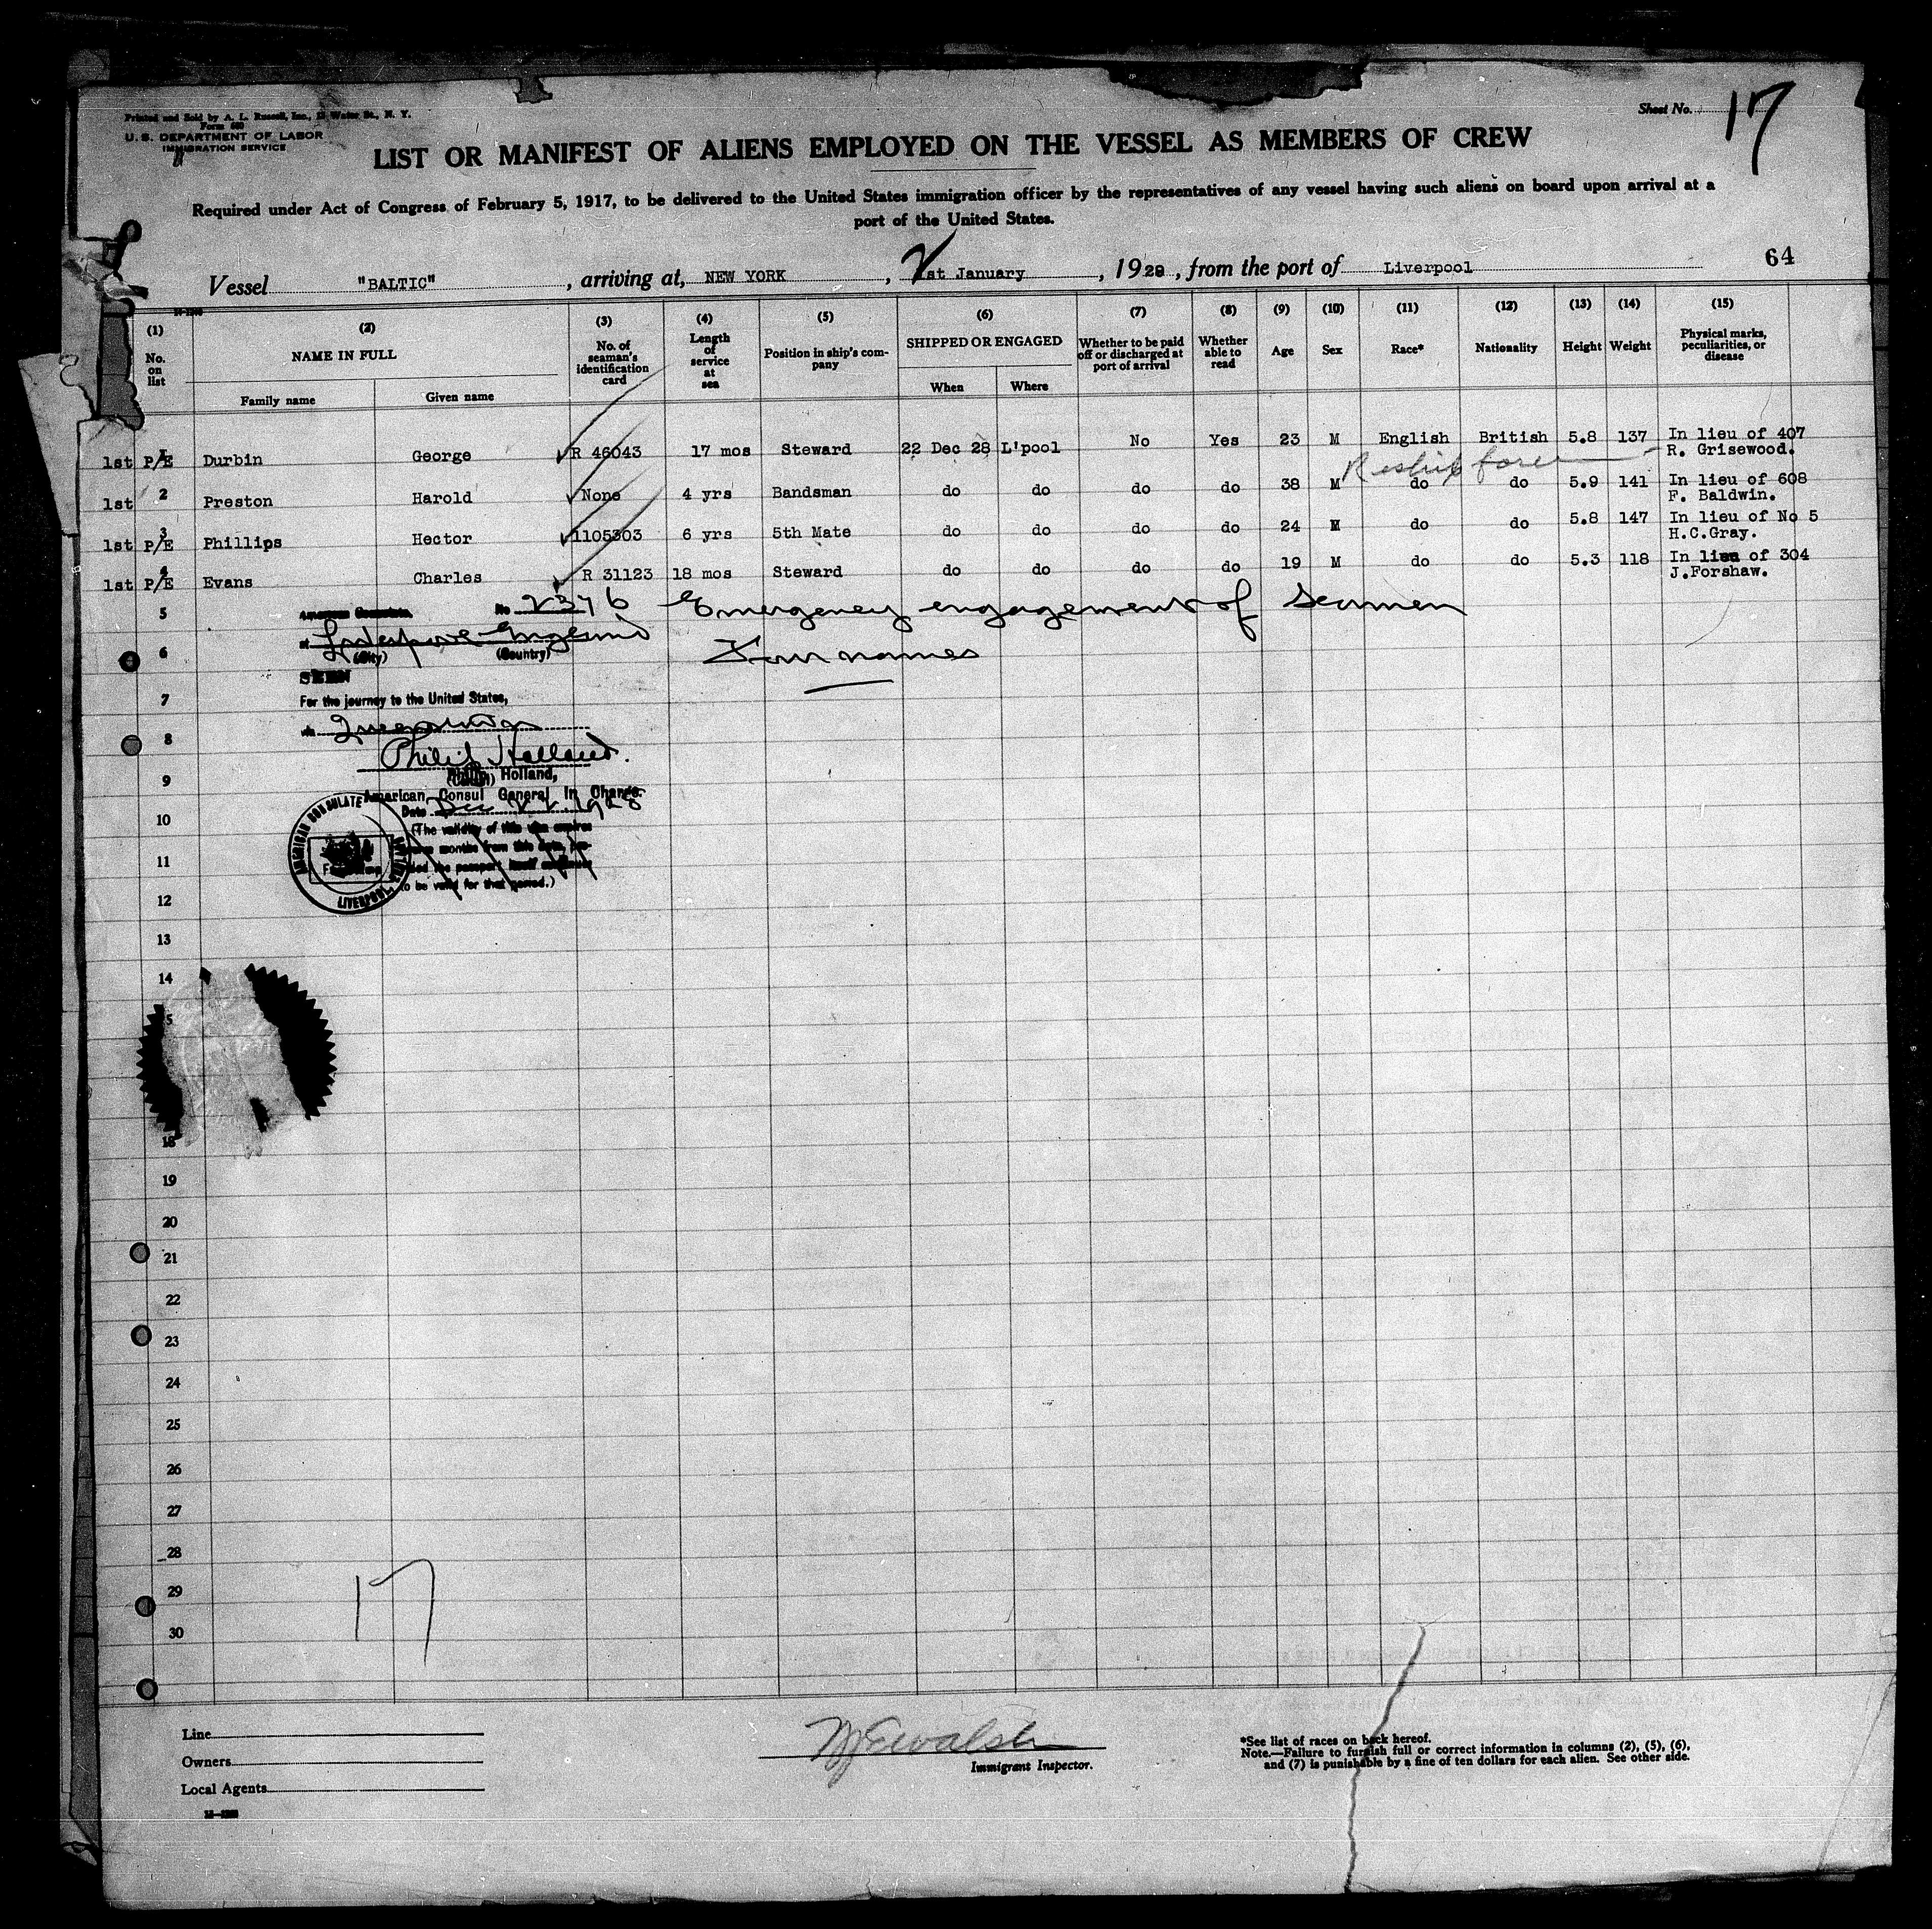 Printed and Sold by A. L. Russell, Inc., Water St., N. Y.
Form 680
U. S. DEPARTMENT OF LABOR
IMMIGRATION SERVICE
Sheet No. 17
LIST OR MANIFEST OF ALIENS EMPLOYED ON THE VESSEL AS MEMBERS OF CREW
Required under Act of Congress of February 5, 1917, to be delivered to the United States immigration officer by the representatives of any vessel having such aliens on board upon arrival at a
port of the United States.
64
Vessel "BALTIC", arriving at, NEW YORK, st January, 1929, from the port of Liverpool
(1) (2) (3) (4) (5) (6) (7) (8) (9) (10) (11) (12) (13) (14) (15)
No. on list
NAME IN FULL
Family name
Given name
No. of seaman's identification card
Length of service at sea
Position in ship's company
SHIPPED OR ENGAGED
When
Where
Whether to be paid off or discharged at port of arrival
Whether able to read
Age
Sex
Race*
Nationality
Height
Weight
Physical marks, peculiarities, or disease
1st P/E 1 Durbin George R 46043 17 mos Steward 22 Dec 28 L'pool No Yes 23 M English British 5.8 137 In lieu of 407 R. Grisewood.
Reship fore
1st 2 Preston Harold None 4 yrs Bandsman do do do do 38 M do do 5.9 141 In lieu of 608 F. Baldwin.
1st P/E 3 Phillips Hector 1105303 6 yrs 5th Mate do do do do 24 M do do 5.8 147 In lieu of No 5 H.C.Gray.
1st P/E 4 Evans Charles R 31123 18 mos Steward do do do do 19 M do do 5.3 118 In lieu of 304 J.Forshaw.
5
American Consulate, No 2376 Emergency engagement of seamen
at Liverpool England
(City) (Country)
6
Four names
SEEN
7
For the journey to the United States,
via Queenstown
8
Philip Holland.
9
Philip Holland,
(Consul)
American Consul General In Charge.
10
Date Dec 22 1928
(The validity of this visa expires
months from this date,
11
the passport
to be valid for that period.)
AMERICAN CONSULATE GENERAL LIVERPOOL
12
13
14
5
18
19
20
21
22
23
24
25
26
27
28
29
30
17
Line
Owners
Local Agents
W E Walsh
Immigrant Inspector.
*See list of races on back hereof.
Note.—Failure to furnish full or correct information in columns (2), (5), (6),
and (7) is punishable by a fine of ten dollars for each alien. See other side.